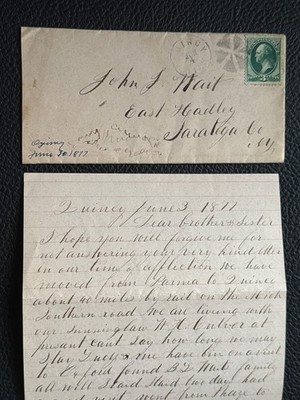 QUINCY
John J Wait
East Hadley
Saratoga Co
NY
Quincy June 3, 1877
Dear Brother & Sister
I hope you will forgive me for
not answering your very kind letter
in our time of affliction We have
moved from Parma to Quincy
about 40 miles by rail on the Mich
Southern road We are living with
our son in law W H Culver at
present cant say how long we may
Stay Lucy & me have bin on a visit
to Oxford found B D Wait family
all well Staid two days had
went from thare to